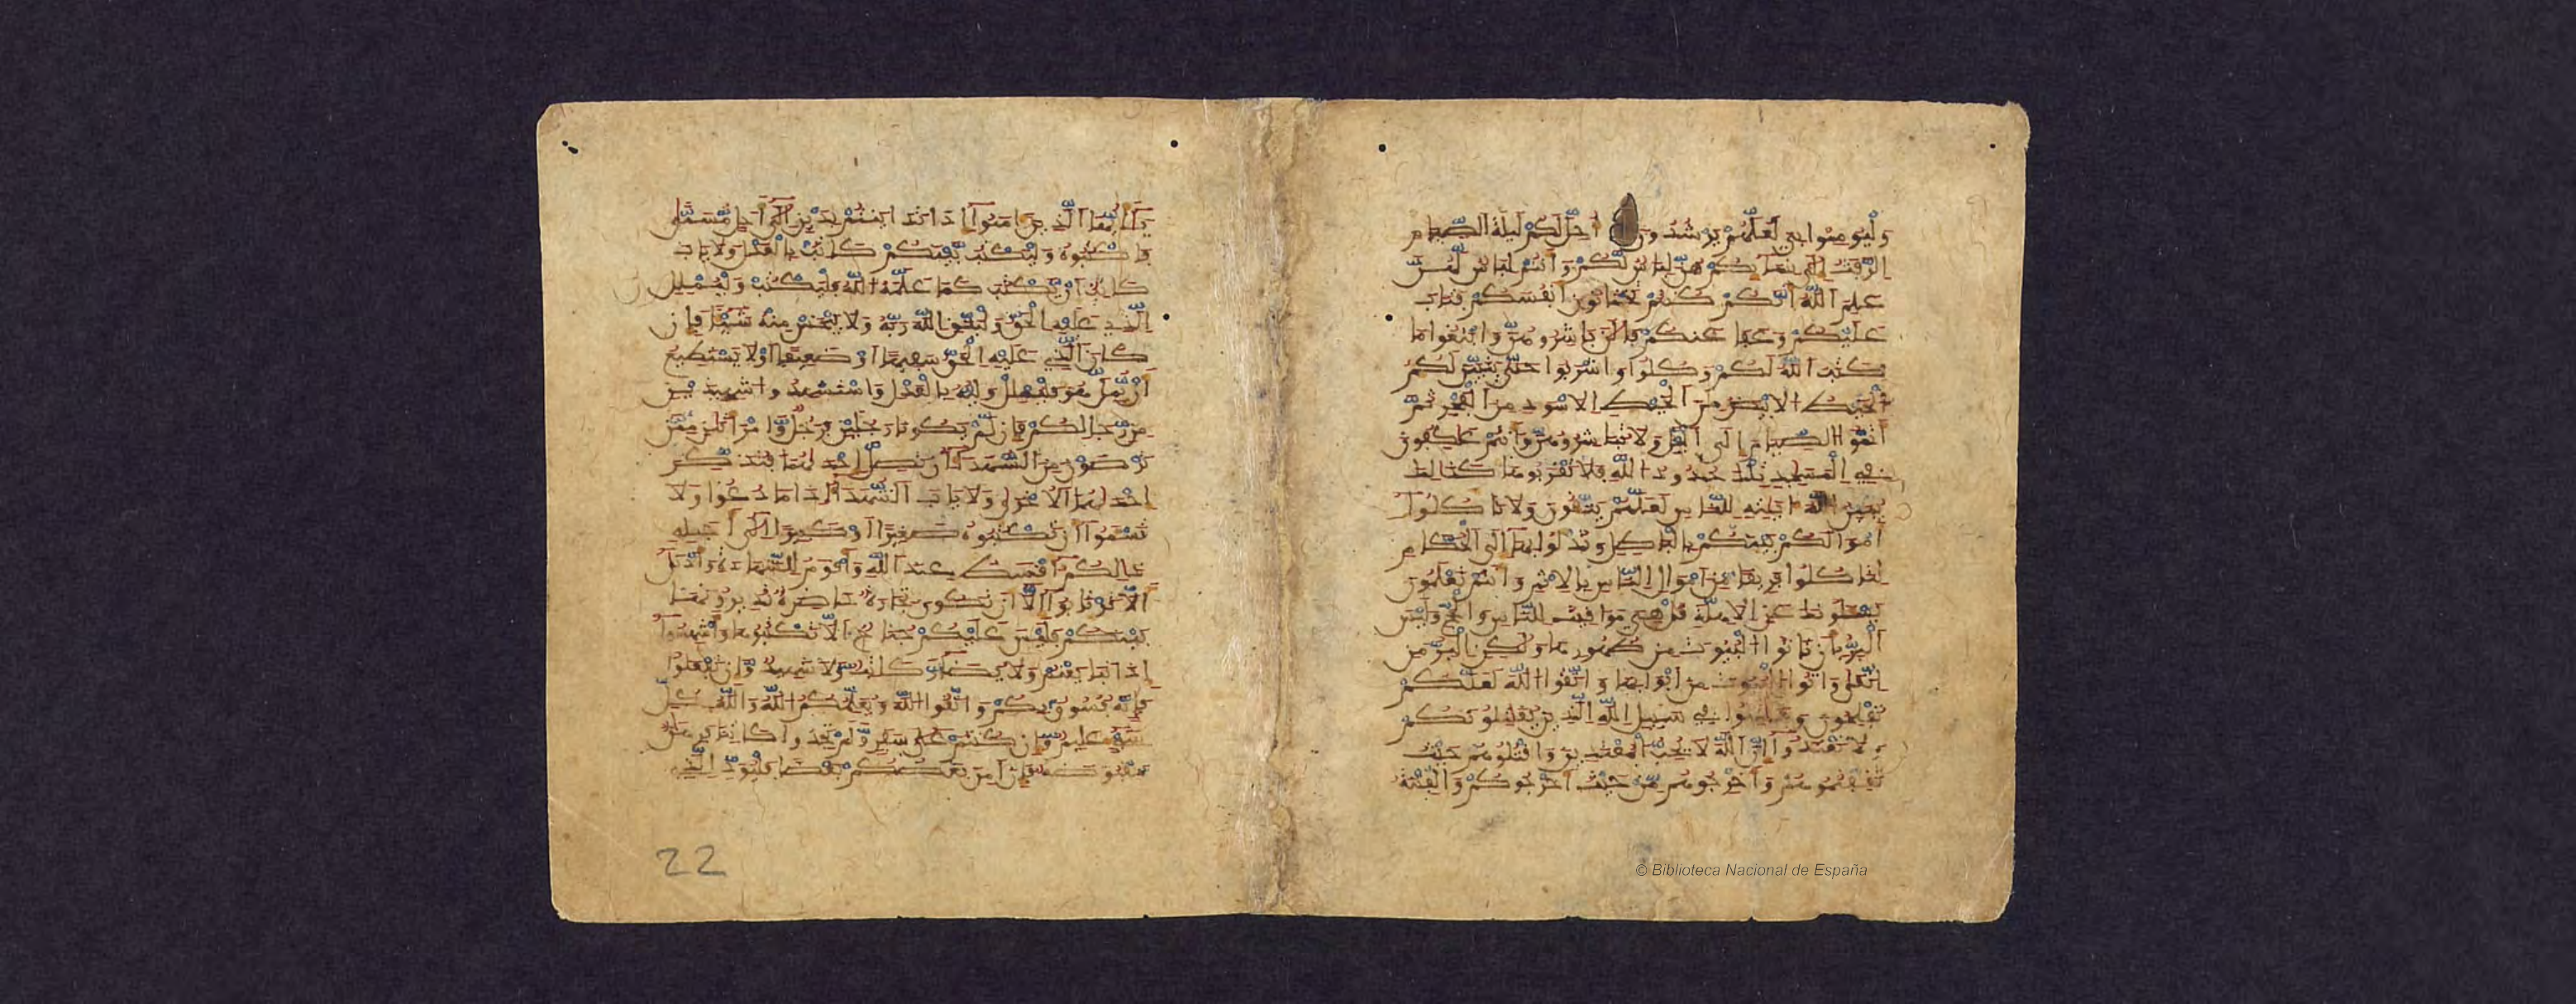 وَلْيُومِنُوا بِي لَعَلَّهُمْ يَرْشُدُونَ أُحِلَّ لَكُمْ لَيْلَةَ الصِّيَامِ
الرَّفَثُ إِلَى نِسَآئِكُمْ هُنَّ لِبَاسٌ لَّكُمْ وَأَنتُمْ لِبَاسٌ لَّهُنَّ
عَلِمَ اللَّهُ أَنَّكُمْ كُنتُمْ تَخْتَانُونَ أَنفُسَكُمْ فَتَابَ
عَلَيْكُمْ وَعَفَا عَنكُمْ فَالَنَ بَاشِرُوهُنَّ وَابْتَغُوا مَا
كَتَبَ اللَّهُ لَكُمْ وَكُلُوا وَاشْرَبُوا حَتَّى يَتَبَيَّنَ لَكُمُ
الْخَيْطُ الَابْيَضُ مِنَ الْخَيْطِ الَاسْوَدِ مِنَ الْفَجْرِ ثُمَّ
أَتِمُّوا الصِّيَامَ إِلَى الَّيْلِ وَلَا تُبَاشِرُوهُنَّ وَأَنتُمْ عَاكِفُونَ
فِي الْمَسَاجِدِ تِلْكَ حُدُودُ اللَّهِ فَلَا تَقْرَبُوهَا كَذَالِكَ
يُبَيِّنُ اللَّهُ ءَايَاتِهِ لِلنَّاسِ لَعَلَّهُمْ يَتَّقُونَ وَلَا تَاكُلُوا
أَمْوَالَكُم بَيْنَكُم بِالْبَاطِلِ وَتُدْلُوا بِهَا إِلَى الْحُكَّامِ
لِتَاكُلُوا فَرِيقًا مِّنَ امْوَالِ النَّاسِ بِالِاثْمِ وَأَنتُمْ تَعْلَمُونَ
يَسْأَلُونَكَ عَنِ الَاهِلَّةِ قُلْ هِيَ مَوَاقِيتُ لِلنَّاسِ وَالْحَجِّ وَلَيْسَ
الْبِرُّ بِأَن تَاتُوا الْبُيُوتَ مِن ظُهُورِهَا وَلَكِنِ الْبِرُّ مَنِ
اتَّقَى وَاتُوا الْبُيُوتَ مِنَ ابْوَابِهَا وَاتَّقُوا اللَّهَ لَعَلَّكُمْ
تُفْلِحُونَ وَقَاتِلُوا فِي سَبِيلِ اللَّهِ الَّذِينَ يُقَاتِلُونَكُمْ
وَلَا تَعْتَدُوا إِنَّ اللَّهَ لَا يُحِبُّ الْمُعْتَدِينَ وَاقْتُلُوهُمْ حَيْثُ
ثَقِفْتُمُوهُمْ وَأَخْرِجُوهُم مِّنْ حَيْثُ أَخْرَجُوكُمْ وَالْفِتْنَةُ
يَا أَيُّهَا الَّذِينَ ءَامَنُوا إِذَا تَدَايَنتُم بِدَيْنٍ إِلَى أَجَلٍ مُّسَمًّى
فَاكْتُبُوهُ وَلْيَكْتُب بَّيْنَكُمْ كَاتِبٌ بِالْعَدْلِ وَلَا يَابَ
كَاتِبٌ أَن يَّكْتُبَ كَمَا عَلَّمَهُ اللَّهُ فَلْيَكْتُبْ وَلْيُمْلِلِ
الَّذِي عَلَيْهِ الْحَقُّ وَلْيَتَّقِ اللَّهَ رَبَّهُ وَلَا يَبْخَسْ مِنْهُ شَيْئًا فَإِن
كَانَ الَّذِي عَلَيْهِ الْحَقُّ سَفِيهًا أَوْ ضَعِيفًا أَوْ لَا يَسْتَطِيعُ
أَن يُّمِلَّ هُوَ فَلْيُمْلِلْ وَلِيُّهُ بِالْعَدْلِ وَاسْتَشْهِدُوا شَهِيدَيْنِ
مِن رِّجَالِكُمْ فَإِن لَّمْ يَكُونَا رَجُلَيْنِ فَرَجُلٌ وَّامْرَأَتَانِ مِمَّن
تَرْضَوْنَ مِنَ الشُّهَدَاءِ أَن تَضِلَّ إِحْدَاهُمَا فَتُذَكِّرَ
إِحْدَاهُمَا الُاخْرَى وَلَا يَابَ الشُّهَدَاءُ إِذَا مَا دُعُوا وَلَا
تَسْئَمُوا أَن تَكْتُبُوهُ صَغِيرًا أَوْ كَبِيرًا إِلَى أَجَلِهِ
ذَالِكُمْ أَقْسَطُ عِندَ اللَّهِ وَأَقْوَمُ لِلشَّهَادَةِ وَأَدْنَى
أَلَّا تَرْتَابُوا إِلَّا أَن تَكُونَ تِجَارَةٌ حَاضِرَةٌ تُدِيرُونَهَا
بَيْنَكُمْ فَلَيْسَ عَلَيْكُمْ جُنَاحٌ أَلَّا تَكْتُبُوهَا وَأَشْهِدُوا
إِذَا تَبَايَعْتُمْ وَلَا يُضَارَّ كَاتِبٌ وَّلَا شَهِيدٌ وَّإِن تَفْعَلُوا
فَإِنَّهُ فُسُوقٌ بِكُمْ وَاتَّقُوا اللَّهَ وَيُعَلِّمُكُمُ اللَّهُ وَاللَّهُ بِكُلِّ
شَيْءٍ عَلِيمٌ وَّإِن كُنتُمْ عَلَى سَفَرٍ وَّلَمْ تَجِدُوا كَاتِبًا فَرِهَانٌ
مَّقْبُوضَةٌ فَإِنَ امِنَ بَعْضُكُم بَعْضًا فَلْيُؤَدِّ الَّذِي
22
© Biblioteca Nacional de España